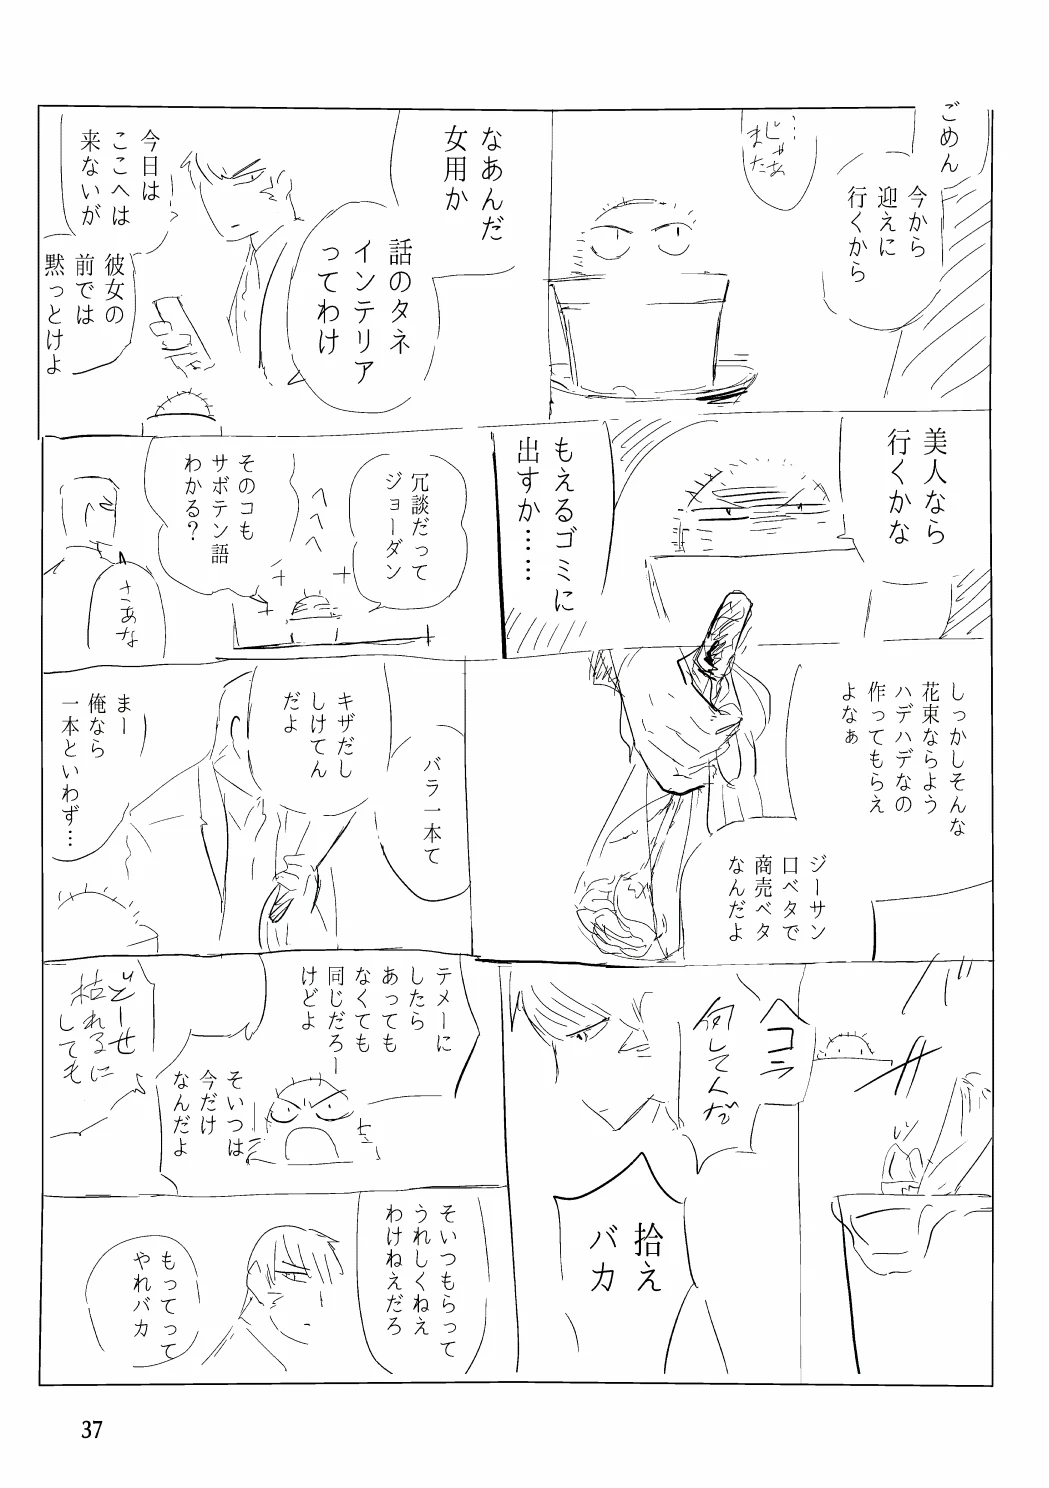 ごめん
今から
迎えに
行くから
…じゃあ
また
なあんだ
女用か
話のタネ
インテリア
ってわけ
今日は
ここへは
来ないが
彼女の
前では
黙っとけよ
美人なら
行くかな
もえるゴミに
出すか……
冗談だって
ジョーダン
へへへ
そのコも
サボテン語
わかる？
さあな
しっかしそんな
花束ならよう
ハデハデなの
作ってもらえ
よなぁ
ジーサン
口ベタで
商売ベタ
なんだよ
バラ一本て
キザだし
しけてん
だよ
まー
俺なら
一本といわず…
バ
ヘコミ
何してんだ
拾え
バカ
テメーに
したら
あっても
なくても
同じだろー
けどよ
そいつは
今だけ
なんだよ
どーせ
枯れるに
しても
そいつもらって
うれしくねえ
わけねえだろ
もってって
やれバカ
37